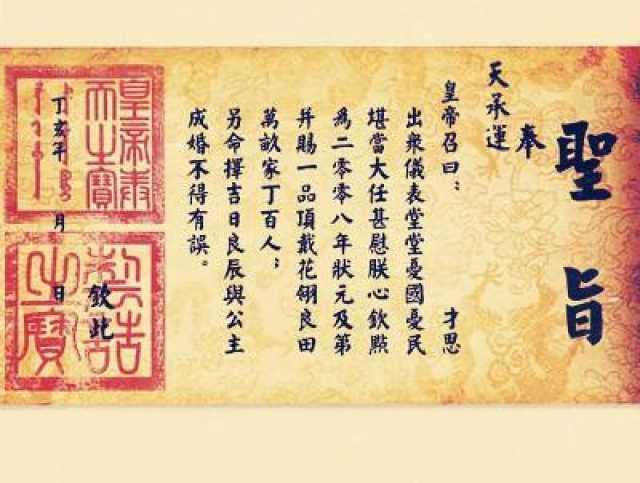 聖旨
奉
天承運
皇帝召曰： 才思
出衆儀表堂堂憂國憂民
堪當大任甚慰朕心欽點
為二〇〇八年狀元及第
并賜一品頂戴花翎良田
萬畝家丁百人；
另命擇吉日良辰與公主
成婚不得有誤。
欽此
丁亥年 月 日
皇帝奉
天之寶
制誥
之寶